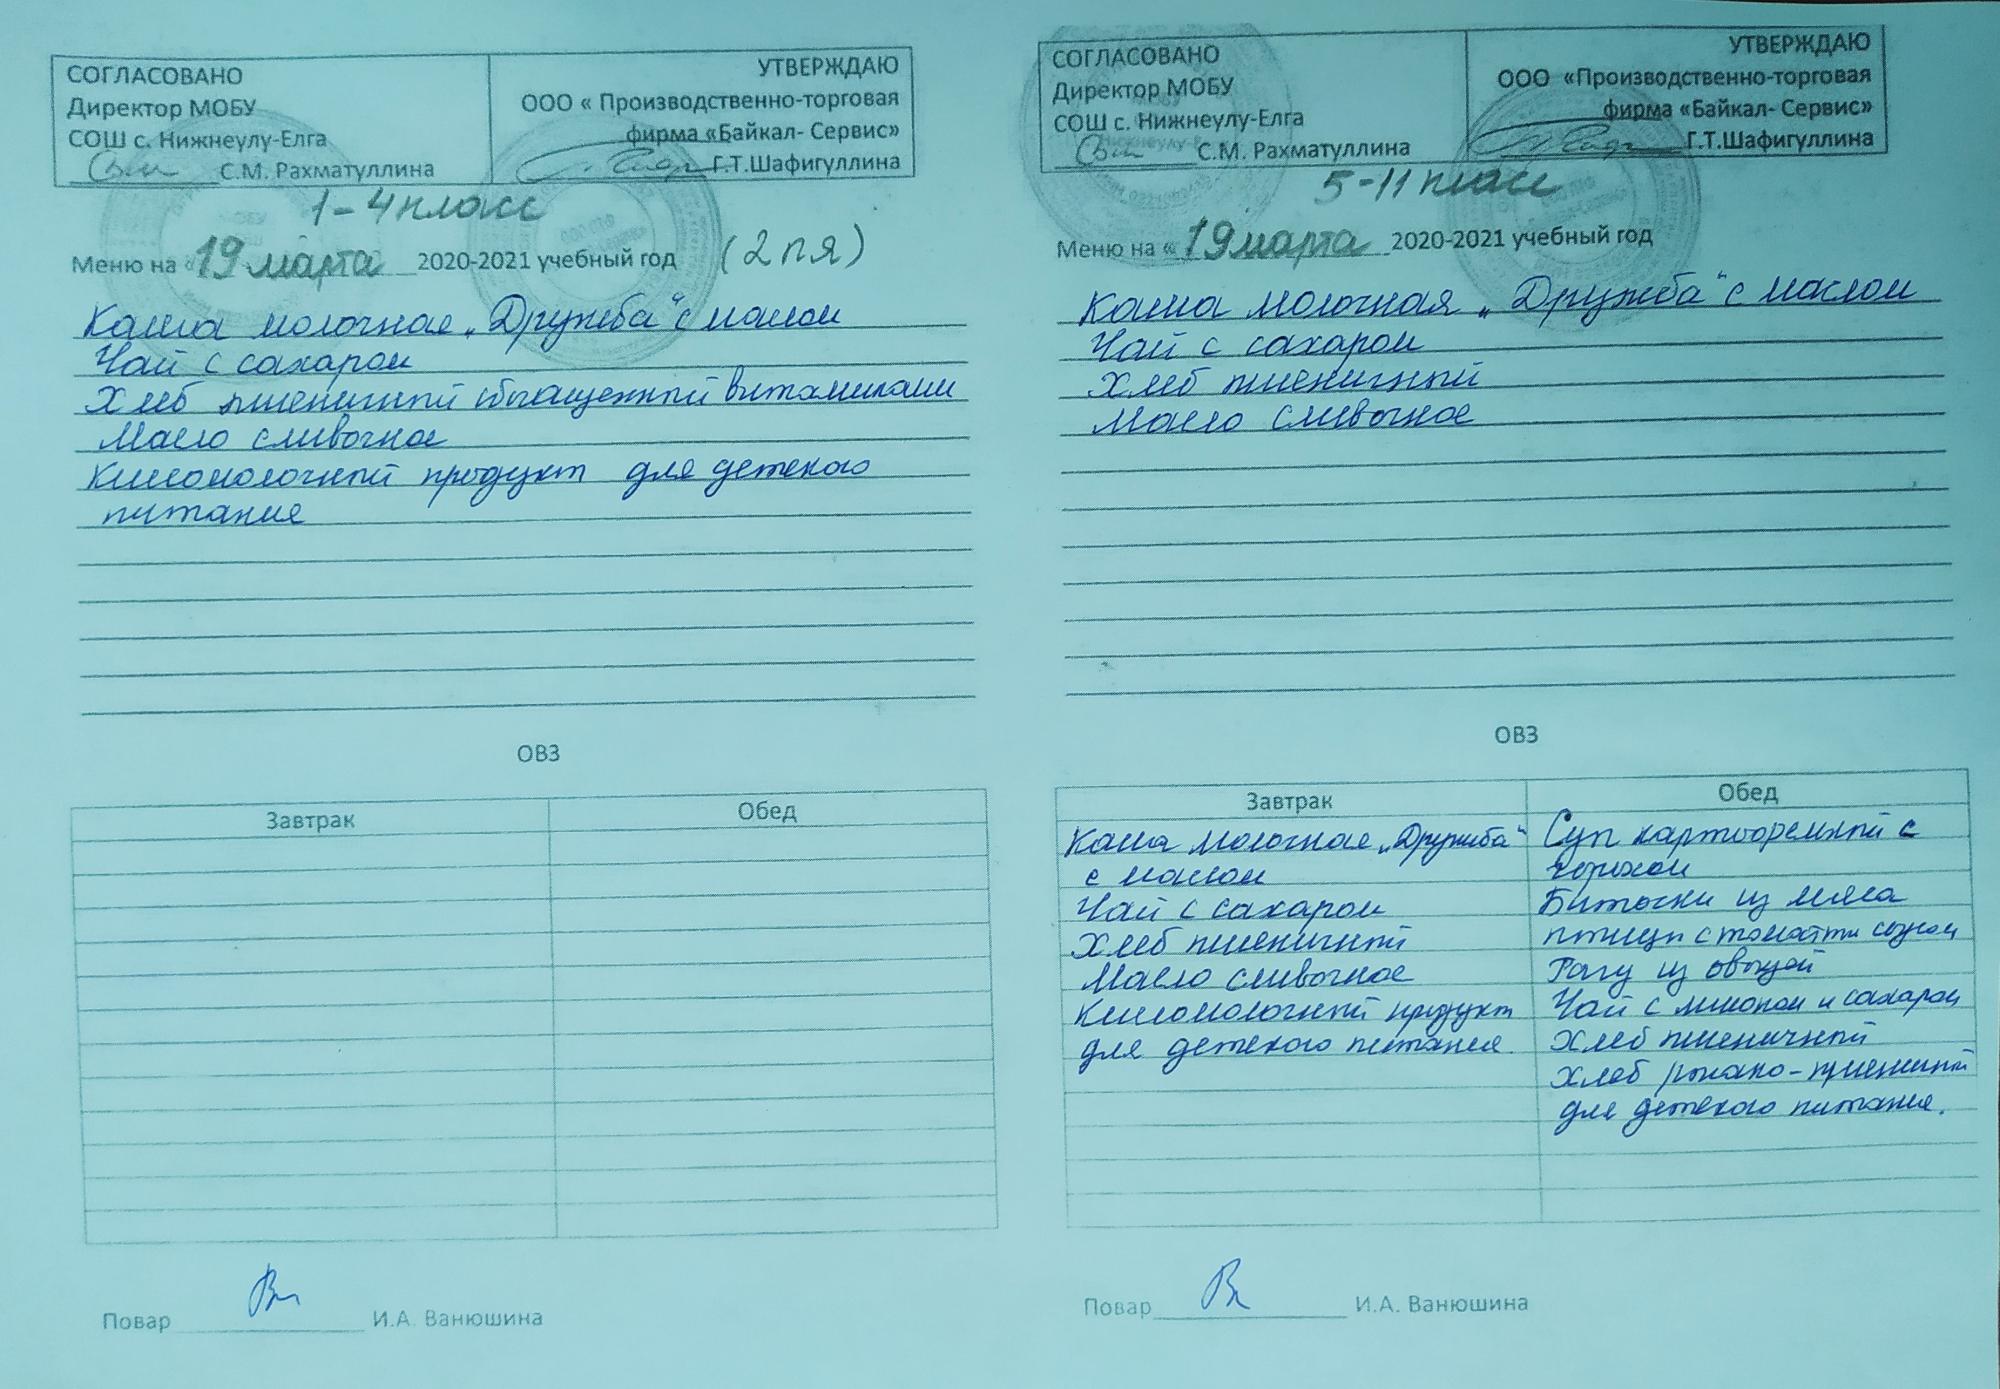 СОГЛАСОВАНО
Директор МОБУ
СОШ с. Нижнеулу-Елга
С.М. Рахматуллина
УТВЕРЖДАЮ
ООО « Производственно-торговая
фирма «Байкал- Сервис»
Г.Т.Шафигуллина
1-4 класс
Меню на « 19 марта 2020-2021 учебный год (2 ля)
Каша молочная „Дружба" с маслом
Чай с сахаром
Хлеб пшеничный обогащенный витаминами
Масло сливочное
Кисломолочный продукт для детского
питание
ОВЗ
Завтрак Обед
Повар И.А. Ванюшина
СОГЛАСОВАНО
Директор МОБУ
СОШ с. Нижнеулу-Елга
С.М. Рахматуллина
УТВЕРЖДАЮ
ООО «Производственно-торговая
фирма «Байкал- Сервис»
Г.Т.Шафигуллина
5-11 класс
Меню на « 19 марта 2020-2021 учебный год
Каша молочная „Дружба" с маслом
Чай с сахаром
Хлеб пшеничный
Масло сливочное
ОВЗ
Завтрак
Каша молочная „Дружба"
с маслом
Чай с сахаром
Хлеб пшеничный
Масло сливочное
Кисломолочный продукт
для детского питания.
Обед
Суп картофельный с
горохом
Биточки из мяса
птицы с томатн соусом
Рагу из овощей
Чай с лимоном и сахаром
Хлеб пшеничный
Хлеб ржано-пшеничный
для детского питания.
Повар И.А. Ванюшина